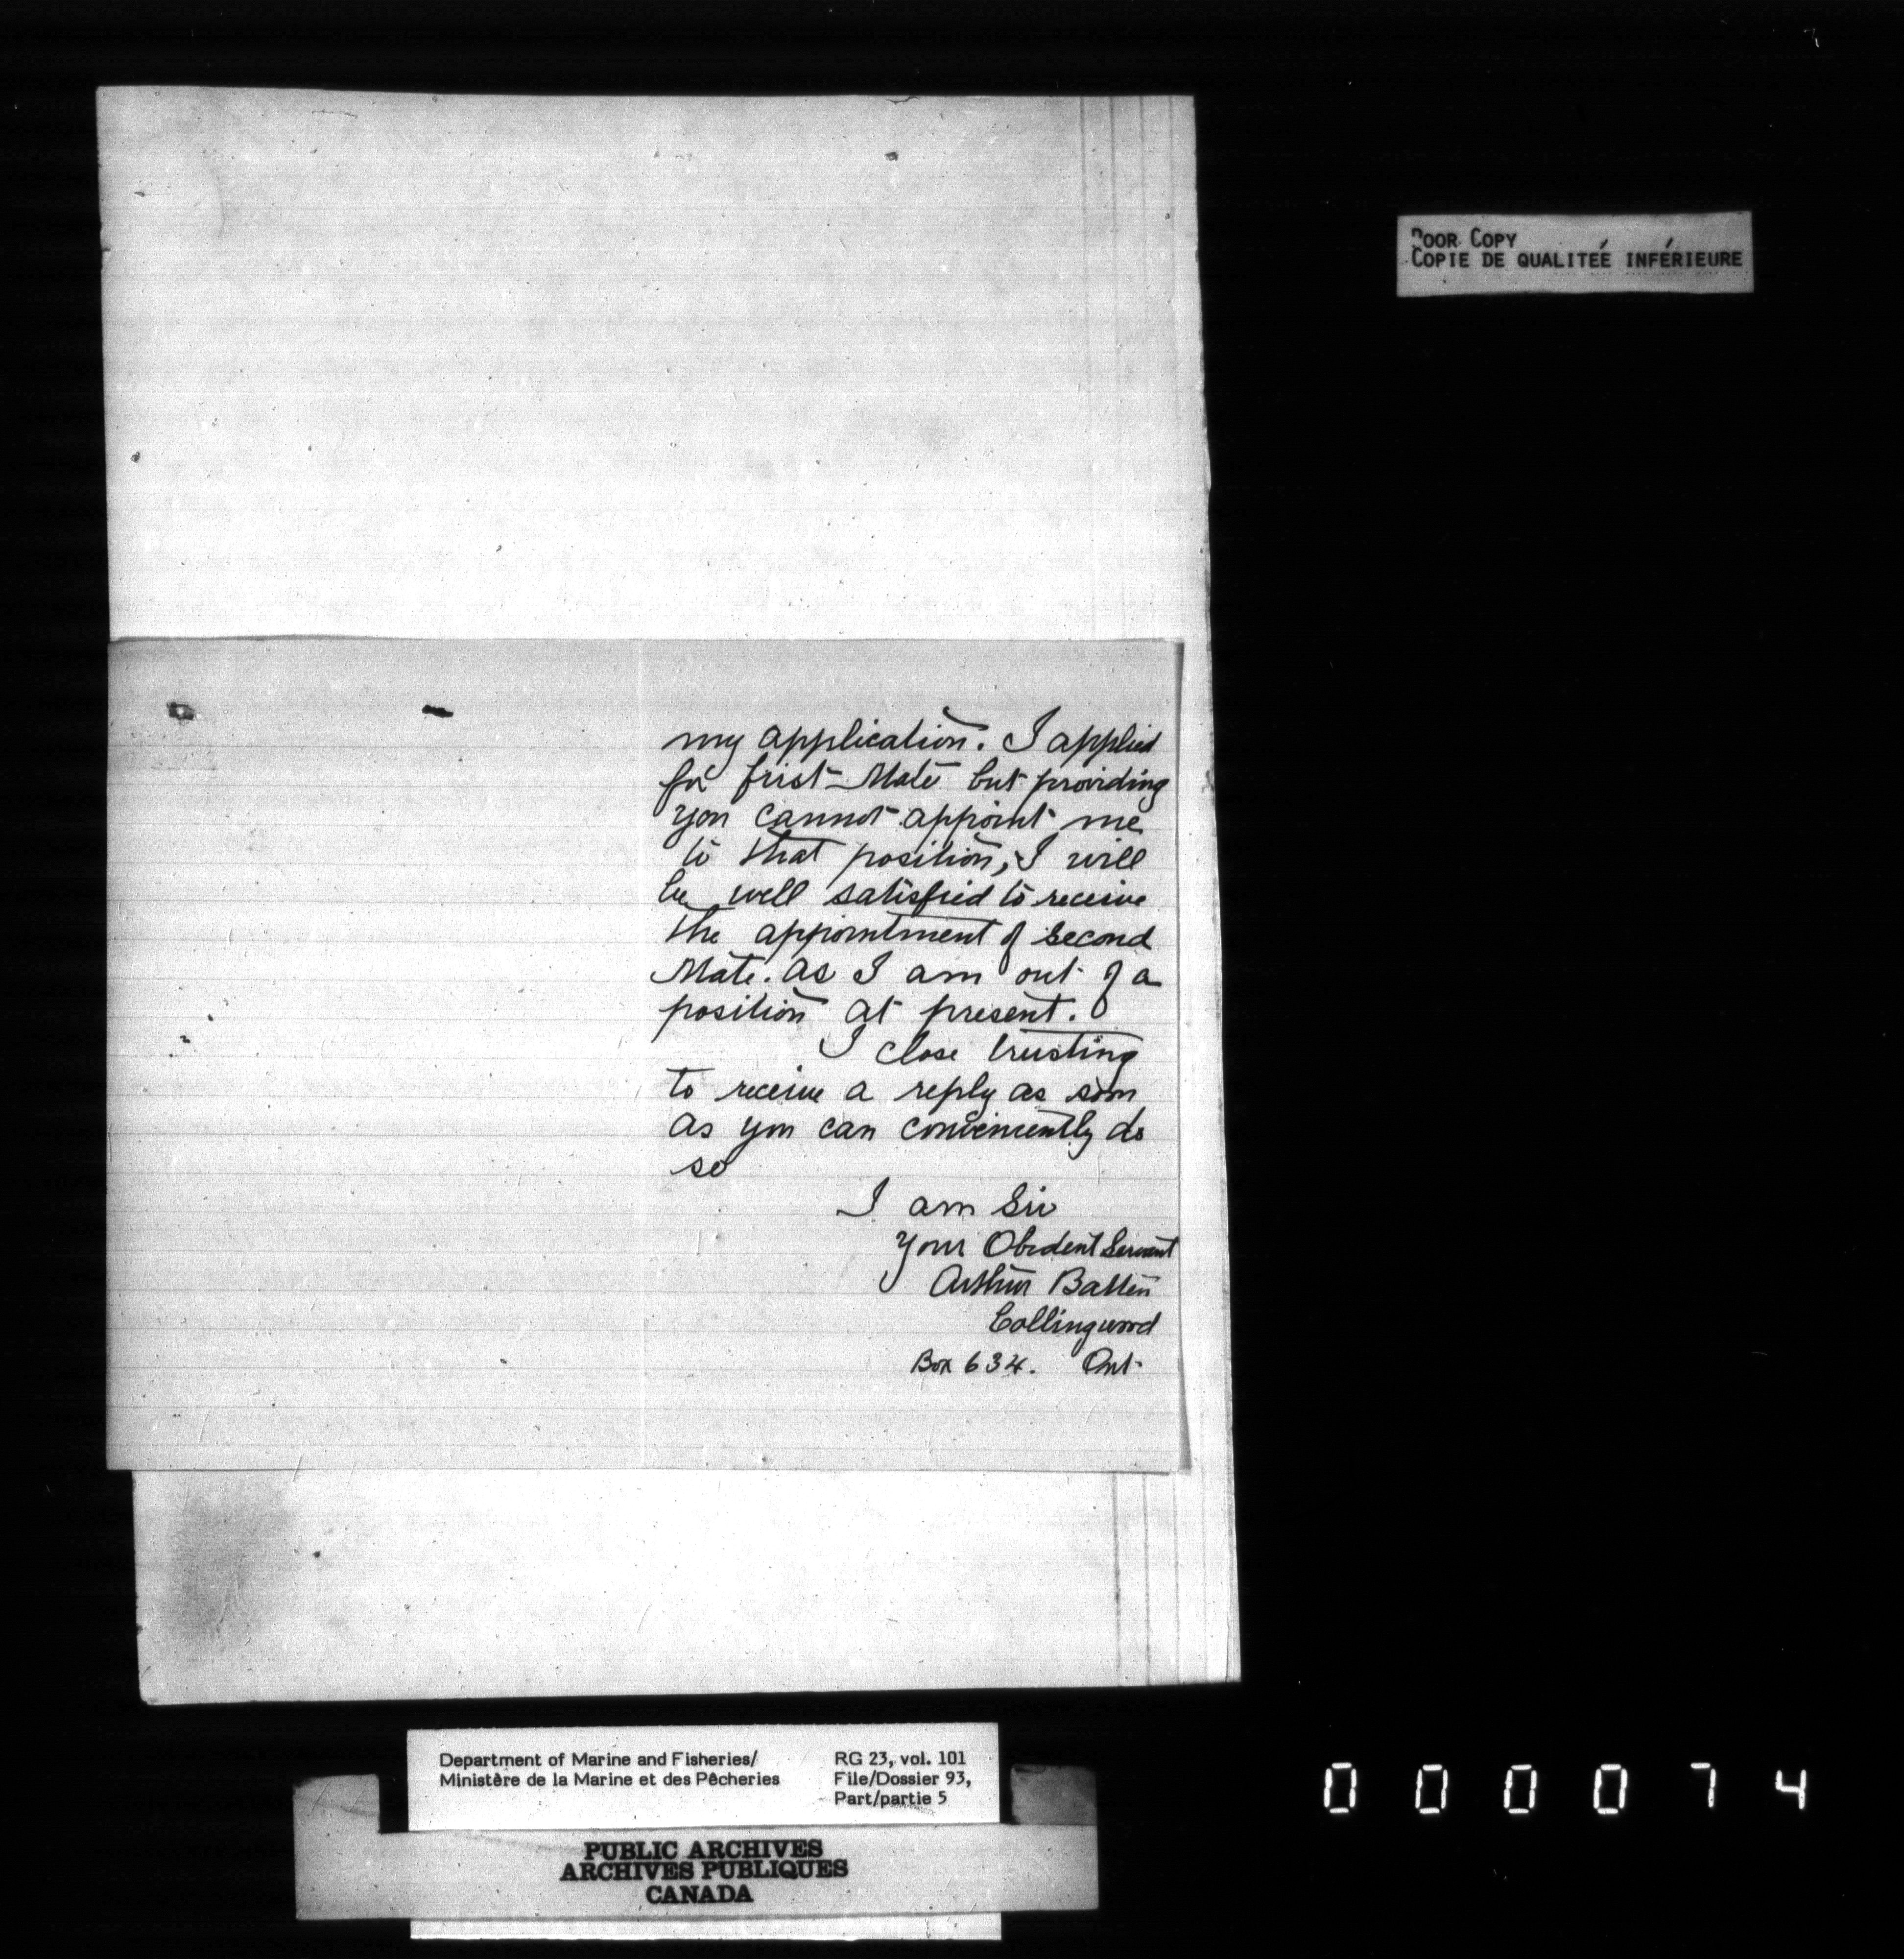 POOR COPY
COPIE DE QUALITEÉ INFÉRIEURE
my application. I applied
for frist Mate but providing
you cannot appoint me
to that position, I will
be well satisfied to receive
the appointment of second
Mate. as I am out of a
position at present.
I close trusting
to receive a reply as soon
as you can conveniently do
so
I am Sir
Your Obedent Servant
Arthur Batten
Collingwood
Box 634. Ont
Department of Marine and Fisheries/
Ministère de la Marine et des Pêcheries
RG 23, vol. 101
File/Dossier 93,
Part/partie 5
PUBLIC ARCHIVES
ARCHIVES PUBLIQUES
CANADA
000074